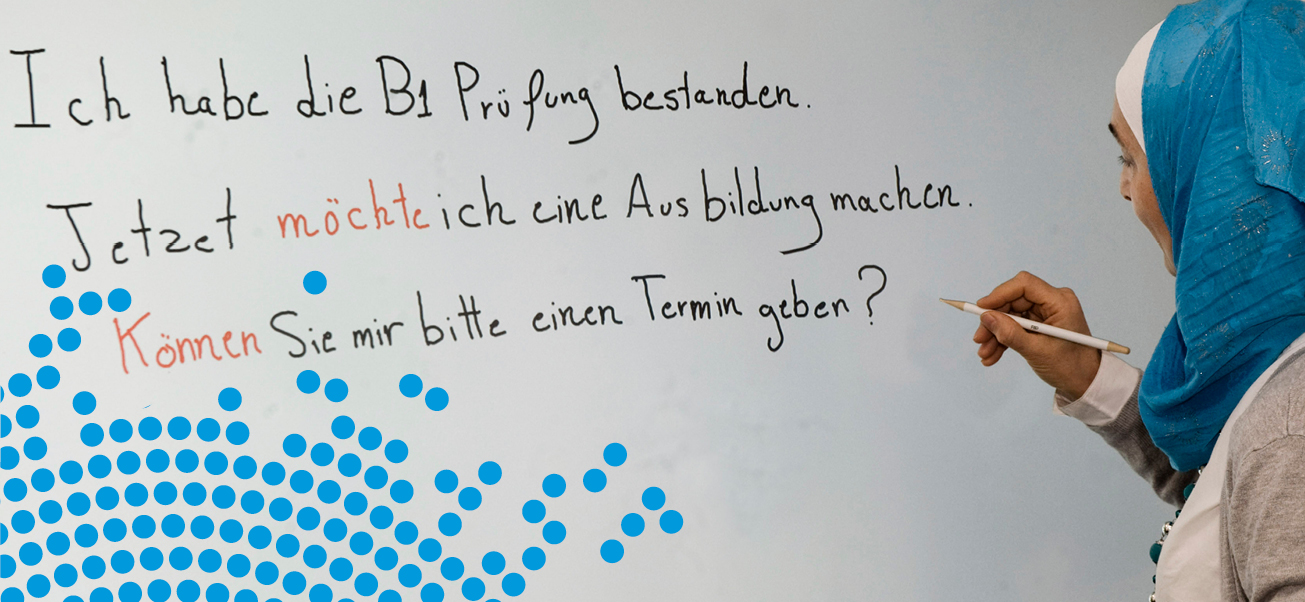 Ich habe die B1 Prüfung bestanden.
Jetzt möchte ich eine Ausbildung machen.
Können Sie mir bitte einen Termin geben?